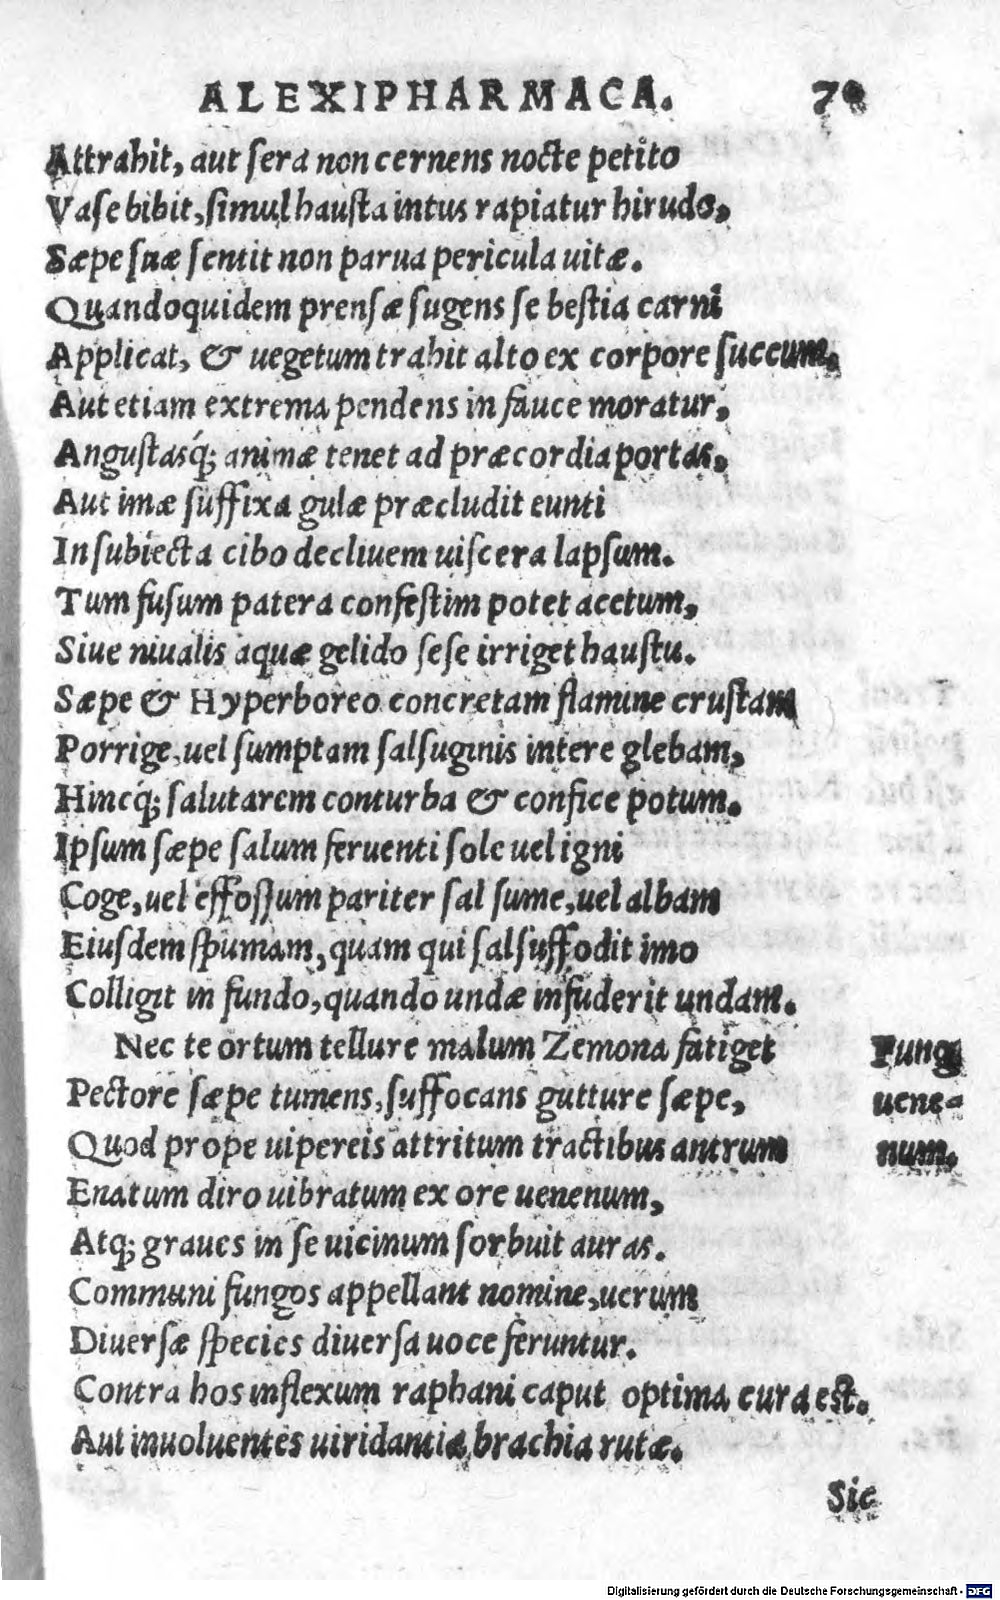 ALEXIPHARMACA.
Attrahit, aut ſera non cernens nocte petito
Vaſe bibit, ſimul hauſta intus rapiatur hirudo,
Sæpe ſuæ ſentit non parua pericula uitæ.
Quandoquidem prenſæ ſugens ſe beſtia carni
Applicat, & uegetum trahit alto ex corpore ſuccum,
Aut etiam extrema pendens in fauce moratur,
Anguſtasq́; animæ tenet ad præcordia portas,
Aut imæ ſuffixa gulæ præcludit eunti
In ſubiecta cibo decliuem uiſcera lapſum.
Tum fuſum patera confeſtim potet acetum,
Siue niualis aquæ gelido ſeſe irriget hauſtu.
Sæpe & Hyperboreo concretam flamine cruſtam
Porrige, uel ſumptam ſalſuginis intere glebam,
Hincq́; ſalutarem conturba & confice potum.
Ipſum ſæpe ſalum feruenti ſole uel igni
Coge, uel effoſſum pariter ſal ſume, uel albam
Eiuſdem ſpumam, quam qui ſal ſuffodit imo
Colligit in fundo, quando undæ infuderit undam.
Nec te ortum tellure malum Zemona fatiget
Fungi
Pectore ſæpe tumens, ſuffocans gutture ſæpe,
uene-
Quod prope uipereis attritum tractibus antrum
num.
Enatum diro uibratum ex ore uenenum,
Atq; graues in ſe uicinum ſorbuit auras.
Communi fungos appellant nomine, uerum
Diuerſæ ſpecies diuerſa uoce feruntur.
Contra hos inflexum raphani caput optima cura eſt.
Aut inuoluentes uiridantia brachia rutæ.
Sic
Digitalisierung gefördert durch die Deutsche Forschungsgemeinschaft - DFG